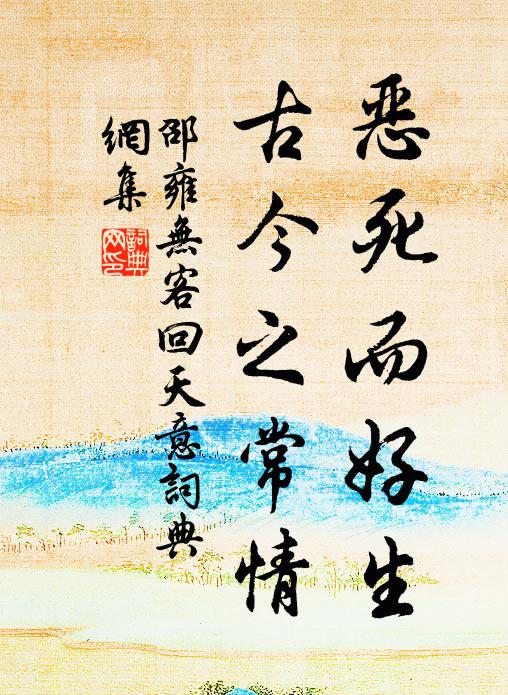 惡死而好生
古今之常情
邵雍無客回天意詞典
網集
詞典網印